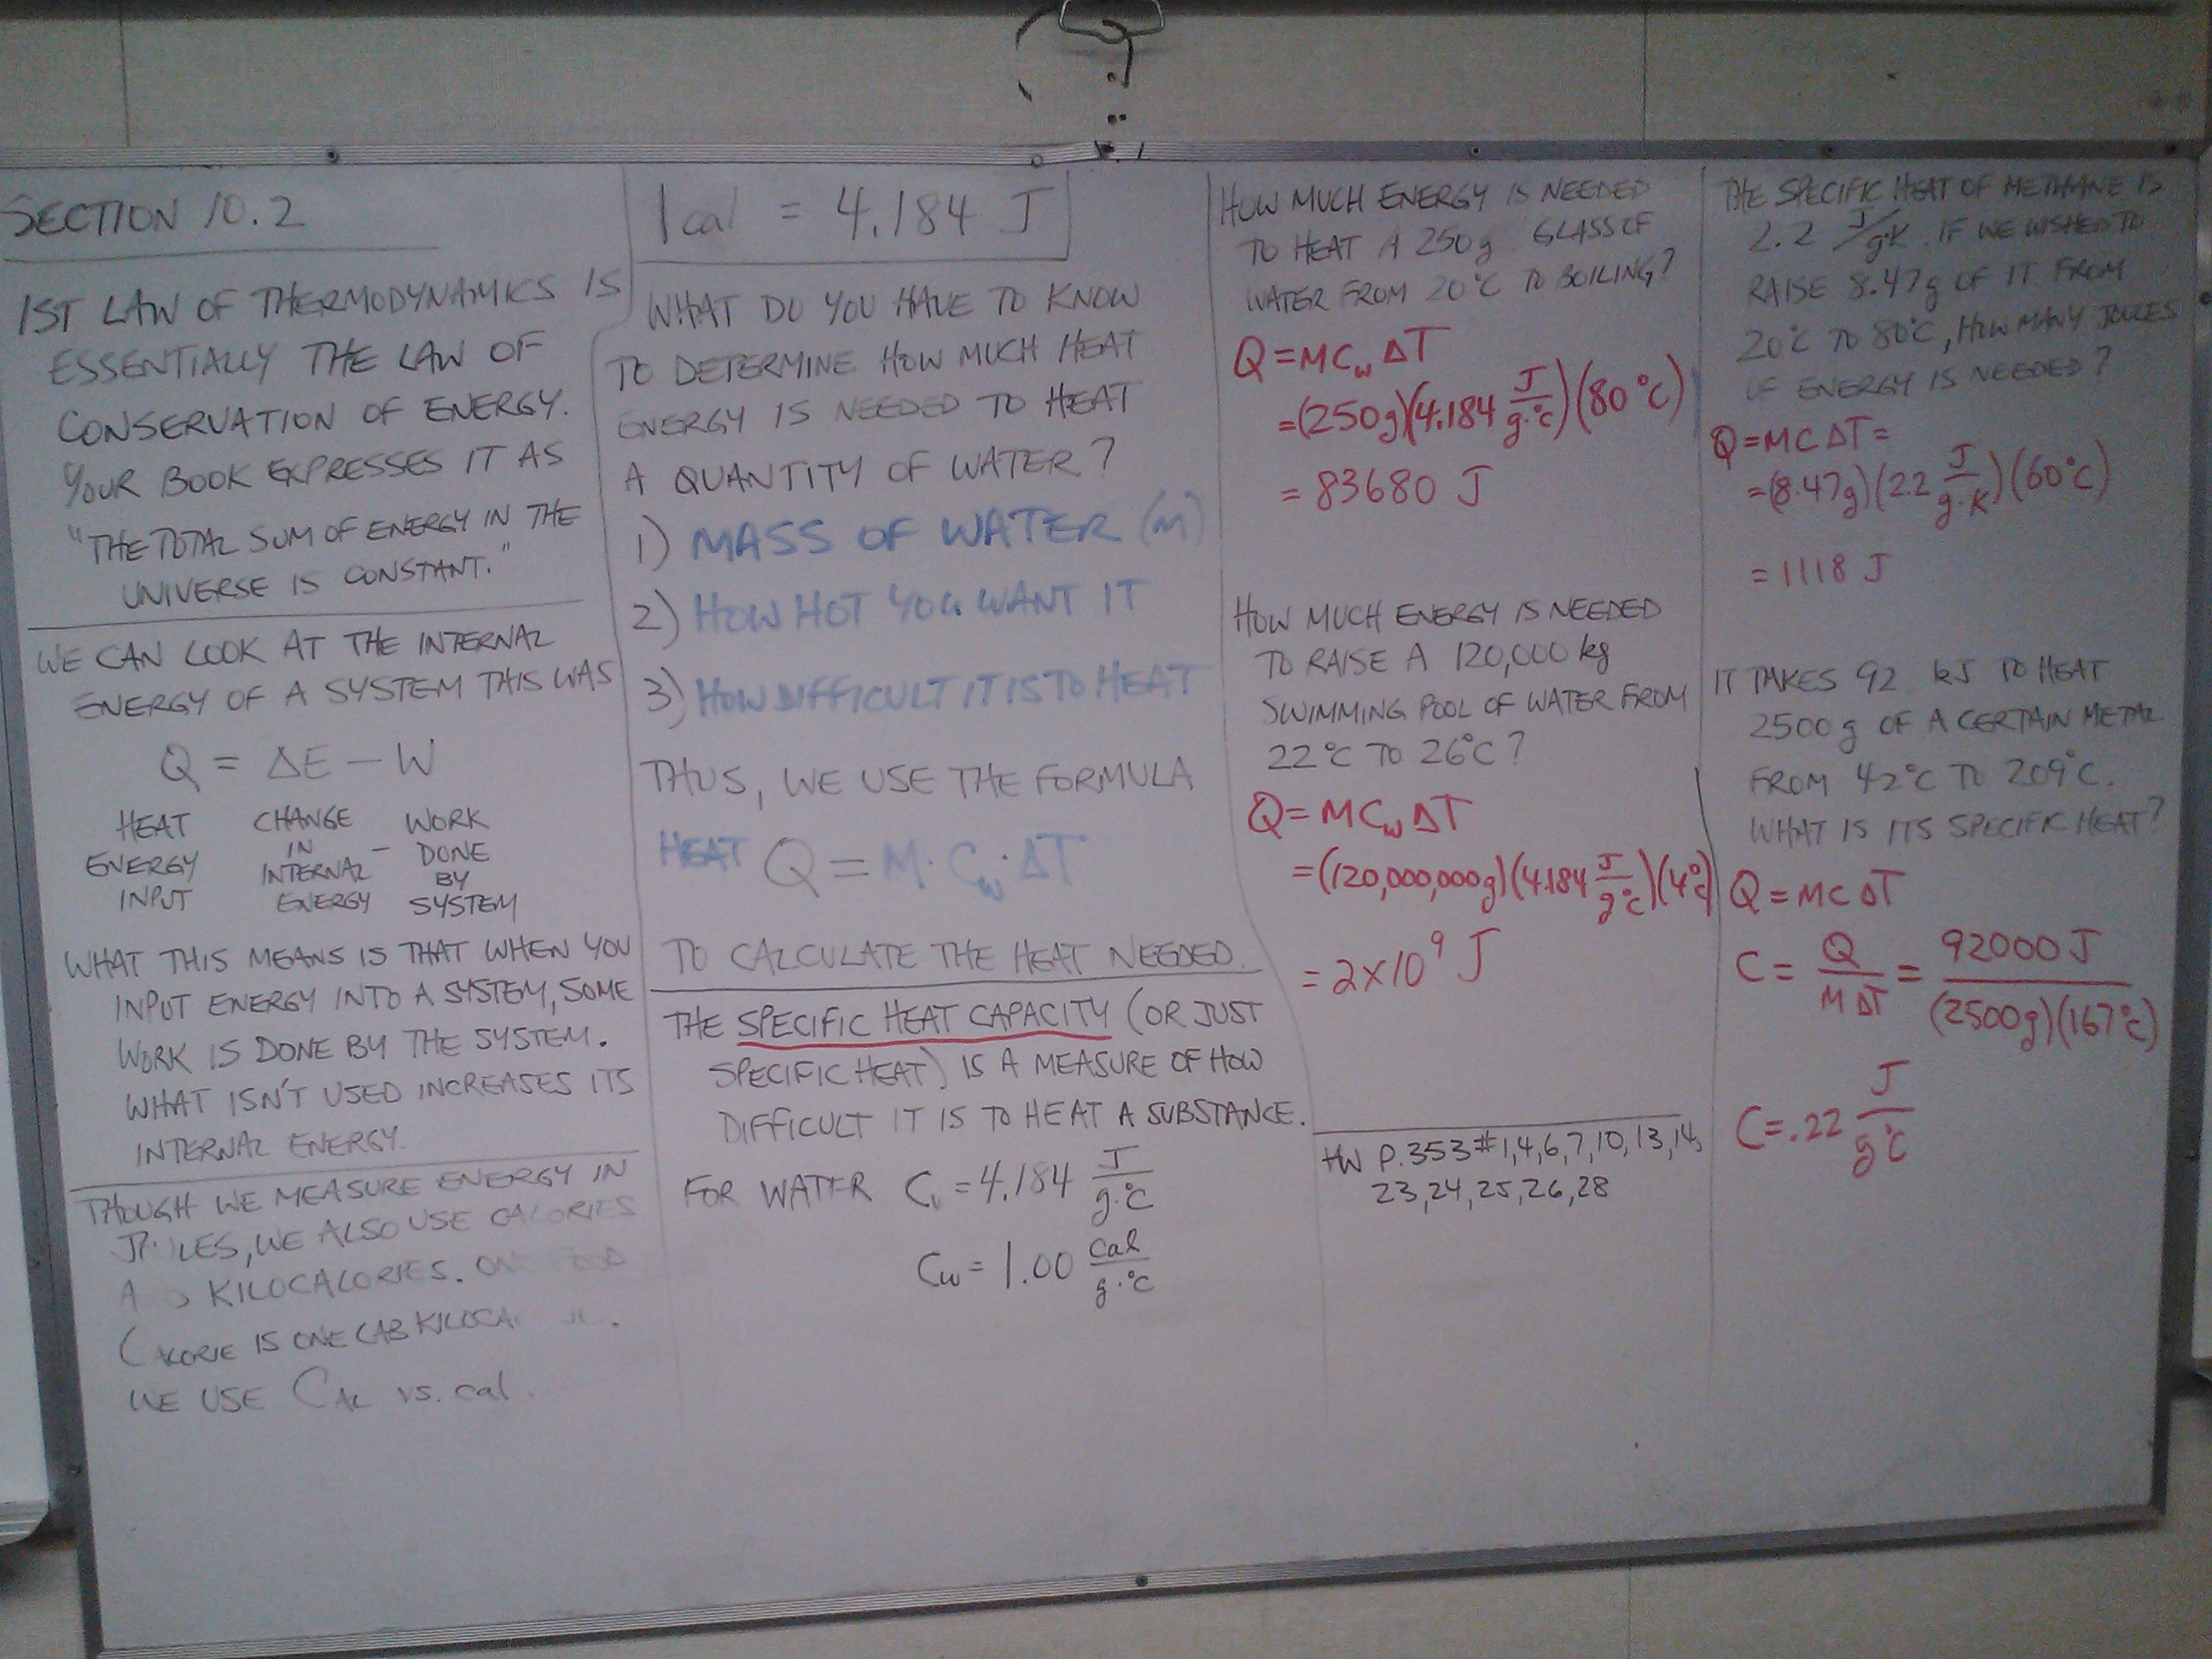 SECTION 10.2
1ST LAW OF THERMODYNAMICS IS
ESSENTIALLY THE LAW OF
CONSERVATION OF ENERGY.
YOUR BOOK EXPRESSES IT AS
"THE TOTAL SUM OF ENERGY IN THE
UNIVERSE IS CONSTANT."
WE CAN LOOK AT THE INTERNAL
ENERGY OF A SYSTEM THIS WAS
Q = ΔE - W
HEAT CHANGE WORK
IN - DONE
ENERGY INTERNAL BY
INPUT ENERGY SYSTEM
WHAT THIS MEANS IS THAT WHEN YOU
INPUT ENERGY INTO A SYSTEM, SOME
WORK IS DONE BY THE SYSTEM.
WHAT ISN'T USED INCREASES ITS
INTERNAL ENERGY.
THOUGH WE MEASURE ENERGY IN
WE ALSO USE CALORIES
KILOCALORIES. ONE FOOD
CALORIE IS ONE LAB
WE USE CAL vs. cal.
1 cal = 4.184 J
WHAT DO YOU HAVE TO KNOW
TO DETERMINE HOW MUCH HEAT
ENERGY IS NEEDED TO HEAT
A QUANTITY OF WATER?
1) MASS OF WATER (M)
2) HOW HOT YOU WANT IT
3) HOW DIFFICULT IT IS TO HEAT
THUS, WE USE THE FORMULA
HEAT Q = M · Cw · ΔT
TO CALCULATE THE HEAT NEEDED.
THE SPECIFIC HEAT CAPACITY (OR JUST
SPECIFIC HEAT) IS A MEASURE OF HOW
DIFFICULT IT IS TO HEAT A SUBSTANCE.
FOR WATER Cw = 4.184 J/g·°C
Cw = 1.00 cal/g·°C
HOW MUCH ENERGY IS NEEDED
TO HEAT A 250g GLASS OF
WATER FROM 20°C TO BOILING?
Q = MCwΔT
= (250g)(4.184 J/g·°C)(80°C)
= 83680 J
HOW MUCH ENERGY IS NEEDED
TO RAISE A 120,000 kg
SWIMMING POOL OF WATER FROM
22°C TO 26°C?
Q = MCwΔT
= (120,000,000g)(4.184 J/g°C)(4°C)
= 2×10⁹ J
HW P.353 #1,4,6,7,10,13,14,
23,24,25,26,28
THE SPECIFIC HEAT OF METHANE IS
2.2 J/g·K. IF WE WISHED TO
RAISE 8.47g OF IT FROM
20°C TO 80°C, HOW MANY JOULES
OF ENERGY IS NEEDED?
Q = MCΔT =
= (8.47g)(2.2 J/g·K)(60°C)
= 1118 J
IT TAKES 92 kJ TO HEAT
2500g OF A CERTAIN METAL
FROM 42°C TO 209°C.
WHAT IS ITS SPECIFIC HEAT?
Q = MCΔT
C = Q/MΔT = 92000 J/(2500g)(167°C)
C = .22 J/g°C